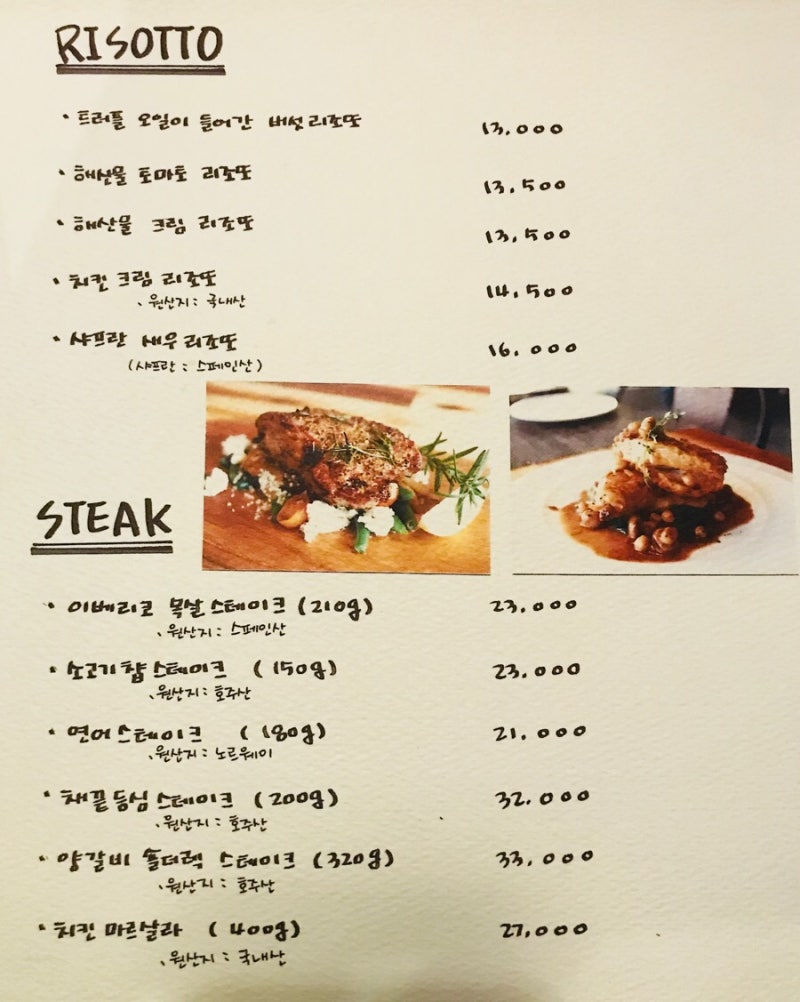 RISOTTO
· 트러플 오일이 들어간 버섯리조또 13,000
· 해산물 토마토 리조또 13,500
· 해산물 크림 리조또 13,500
· 치킨 크림 리조또 14,500
· 원산지 : 국내산
· 샤프란 새우 리조또 16,000
(샤프란 : 스페인산)
STEAK
· 이베리코 목살 스테이크 (210g) 23,000
· 원산지 : 스페인산
· 소고기 찹 스테이크 (150g) 23,000
· 원산지 : 호주산
· 연어 스테이크 (180g) 21,000
· 원산지 : 노르웨이
· 채끝 등심 스테이크 (200g) 32,000
· 원산지 : 호주산
· 양갈비 숄더랙 스테이크 (320g) 33,000
· 원산지 : 호주산
· 치킨 마르살라 (400g) 27,000
· 원산지 : 국내산